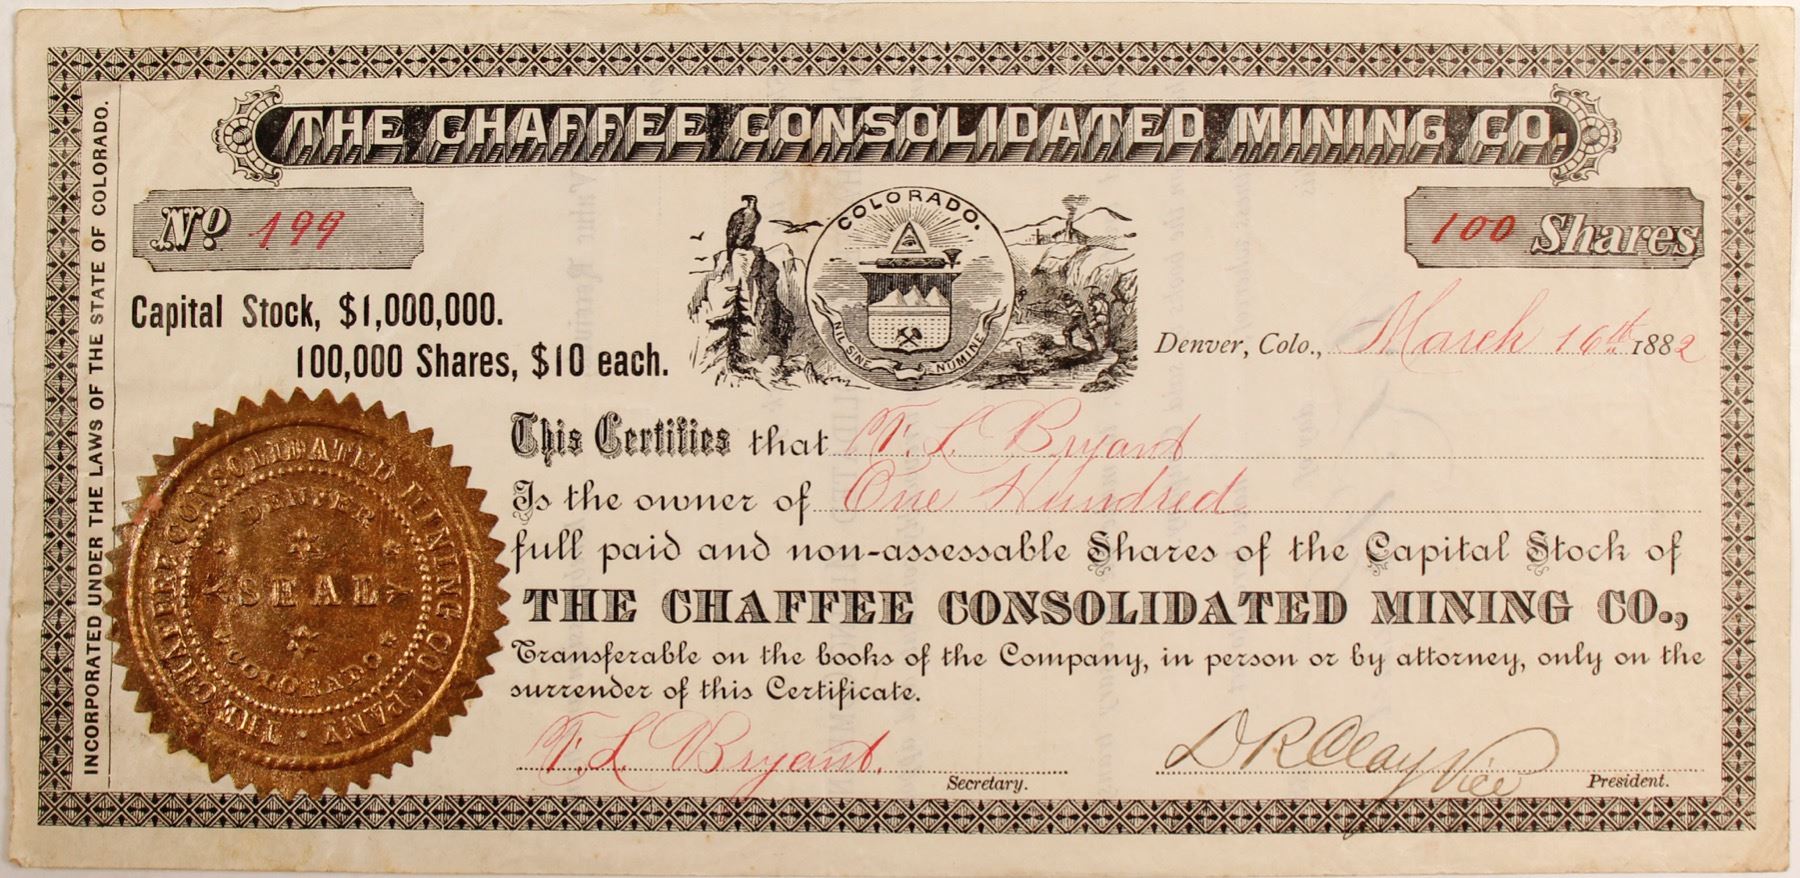 THE CHAFFEE CONSOLIDATED MINING CO.
No 199
100 Shares
COLORADO.
NIL SINE NUMINE
Capital Stock, $1,000,000.
100,000 Shares, $10 each.
Denver, Colo., March 16th 1882
INCORPORATED UNDER THE LAWS OF THE STATE OF COLORADO.
This Certifies that F. L. Bryant
Is the owner of One Hundred
full paid and non-assessable Shares of the Capital Stock of
THE CHAFFEE CONSOLIDATED MINING CO.,
Transferable on the books of the Company, in person or by attorney, only on the
surrender of this Certificate.
THE CHAFFEE CONSOLIDATED MINING COMPANY
DENVER
SEAL
COLORADO
F. L. Bryant. Secretary.
D R Clay Vice President.